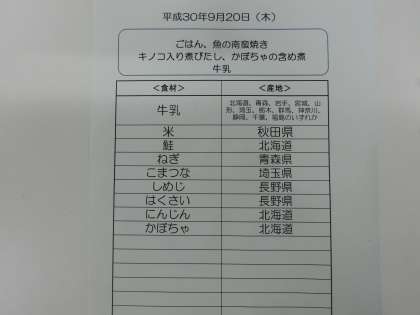 平成30年9月20日（木）
ごはん、魚の南蛮焼き
キノコ入り煮びたし、かぼちゃの含め煮
牛乳
＜食材＞ ＜産地＞
牛乳 北海道、青森、岩手、宮城、山
形、埼玉、栃木、群馬、神奈川、
静岡、千葉、福島のいずれか
米 秋田県
鮭 北海道
ねぎ 青森県
こまつな 埼玉県
しめじ 長野県
はくさい 長野県
にんじん 北海道
かぼちゃ 北海道